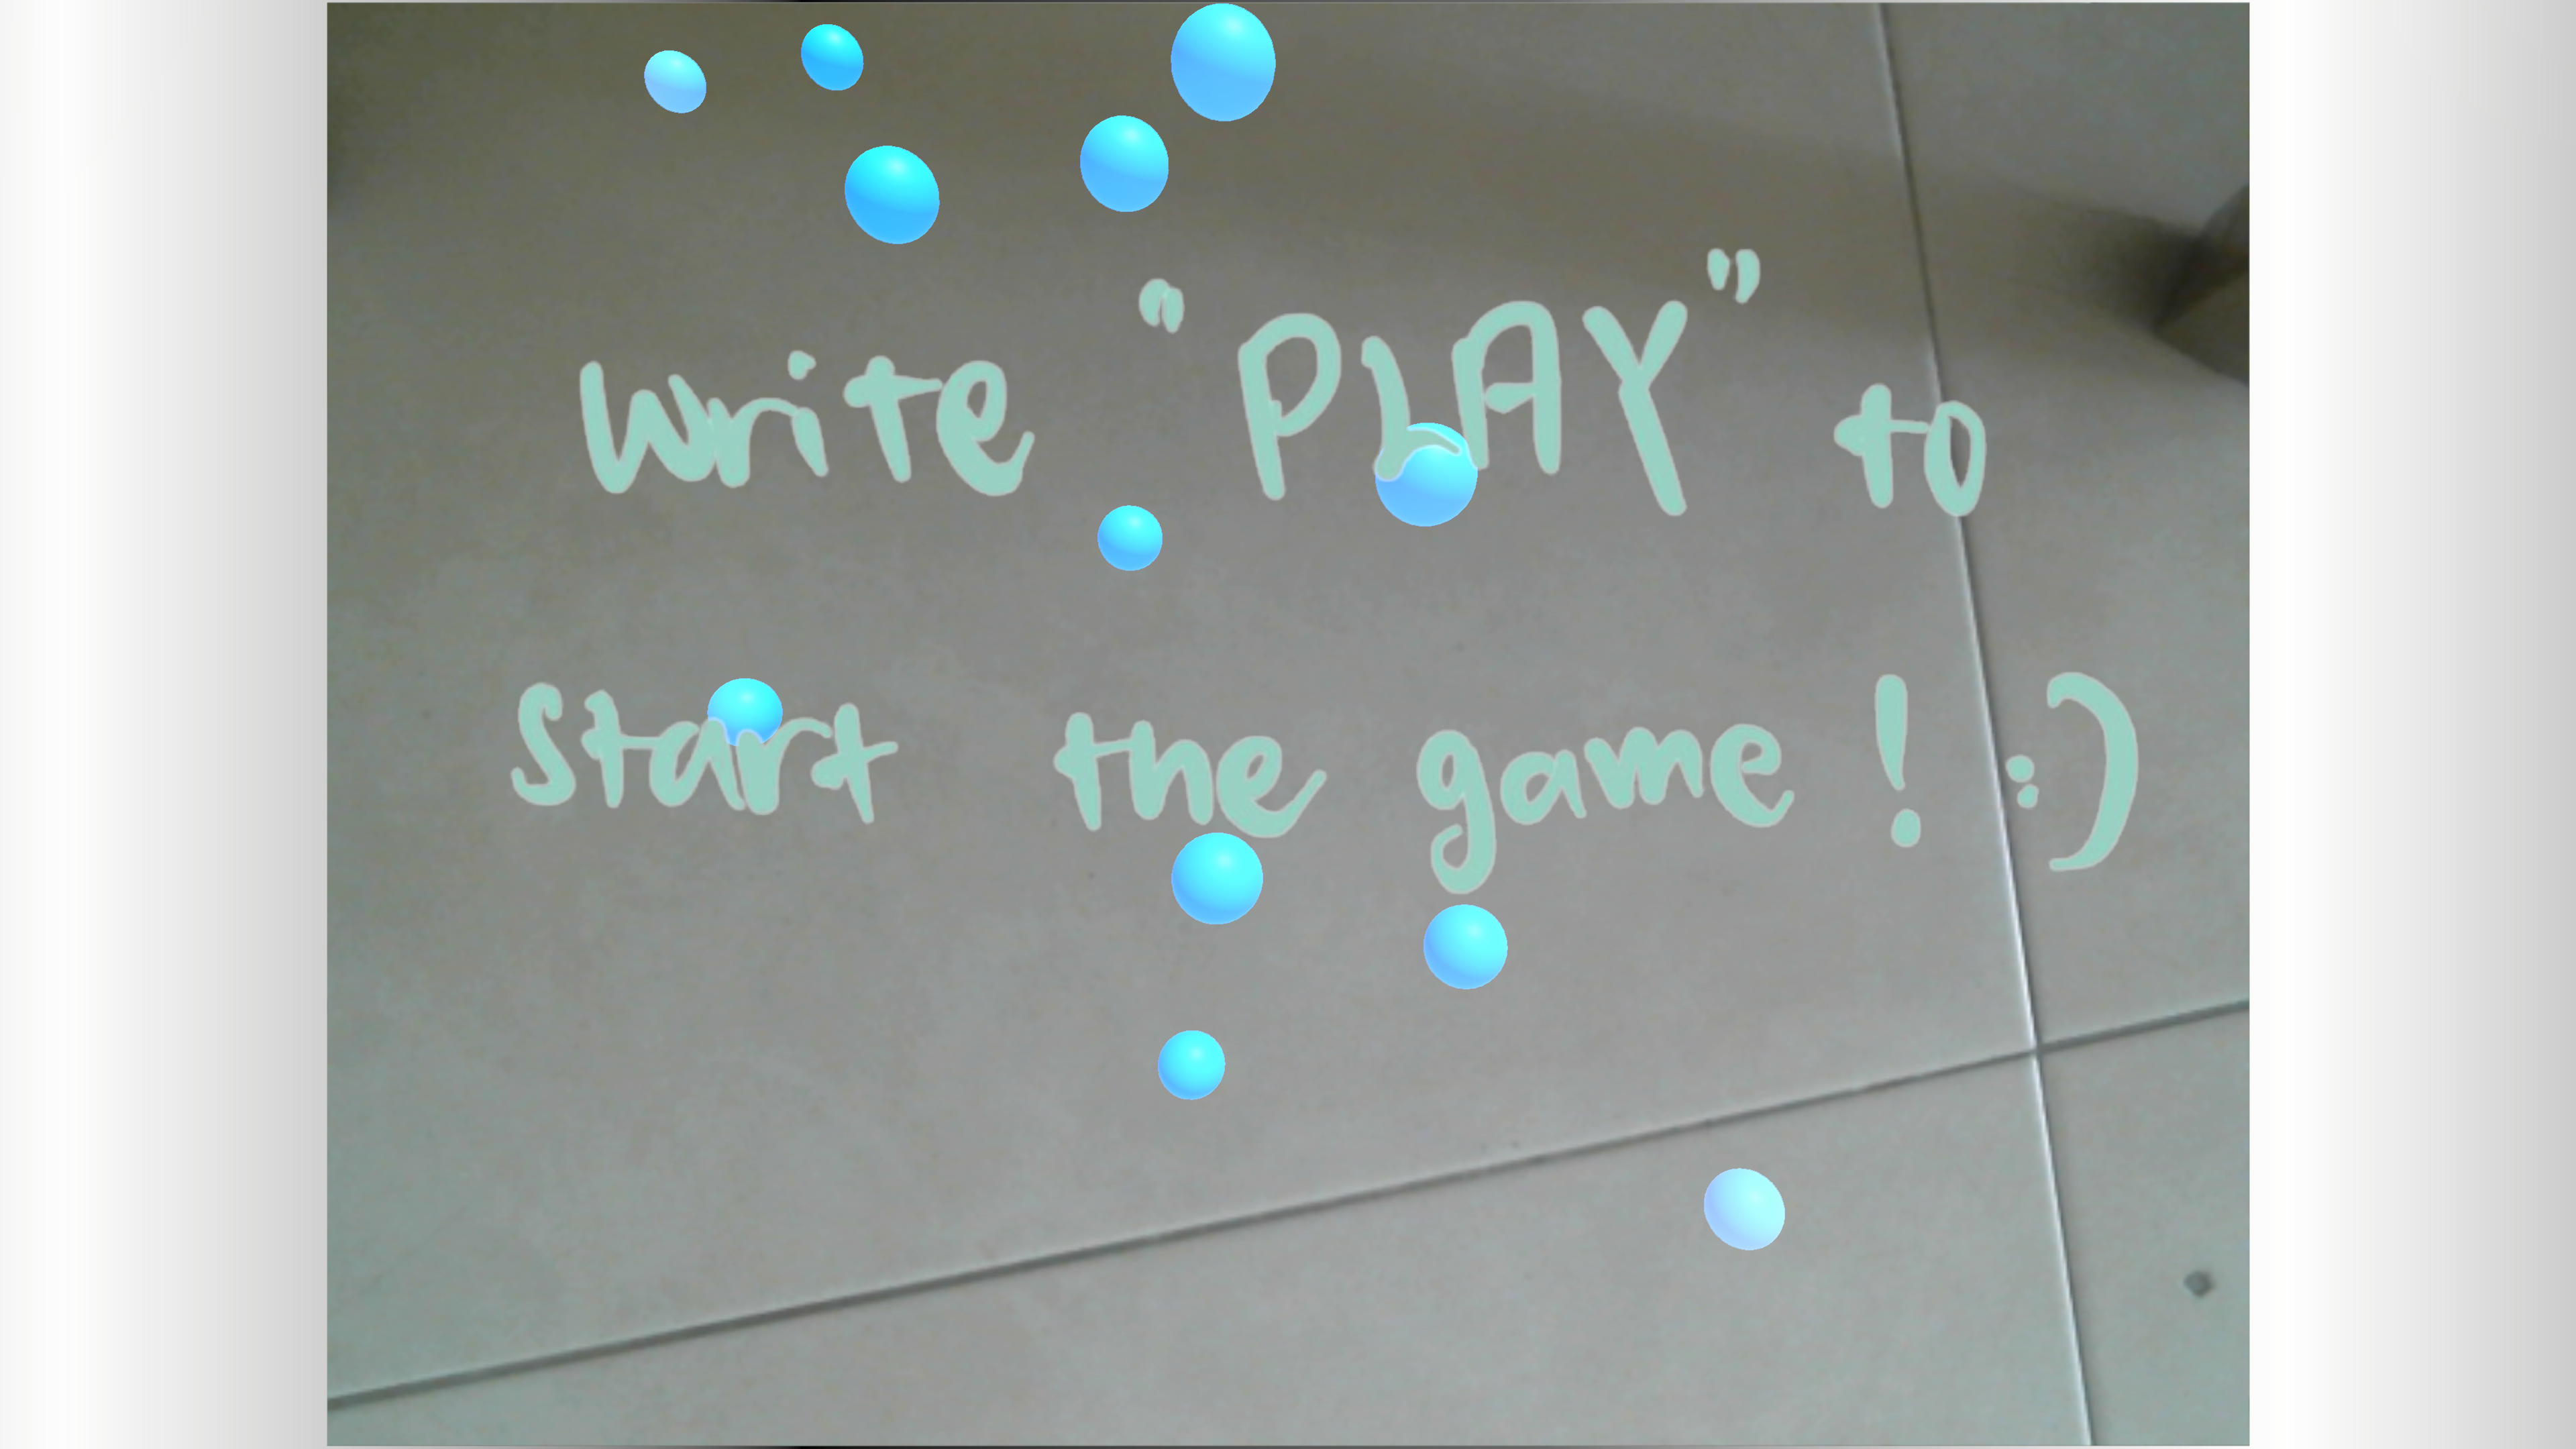 Write “PLAY” to
Start the game ! :)